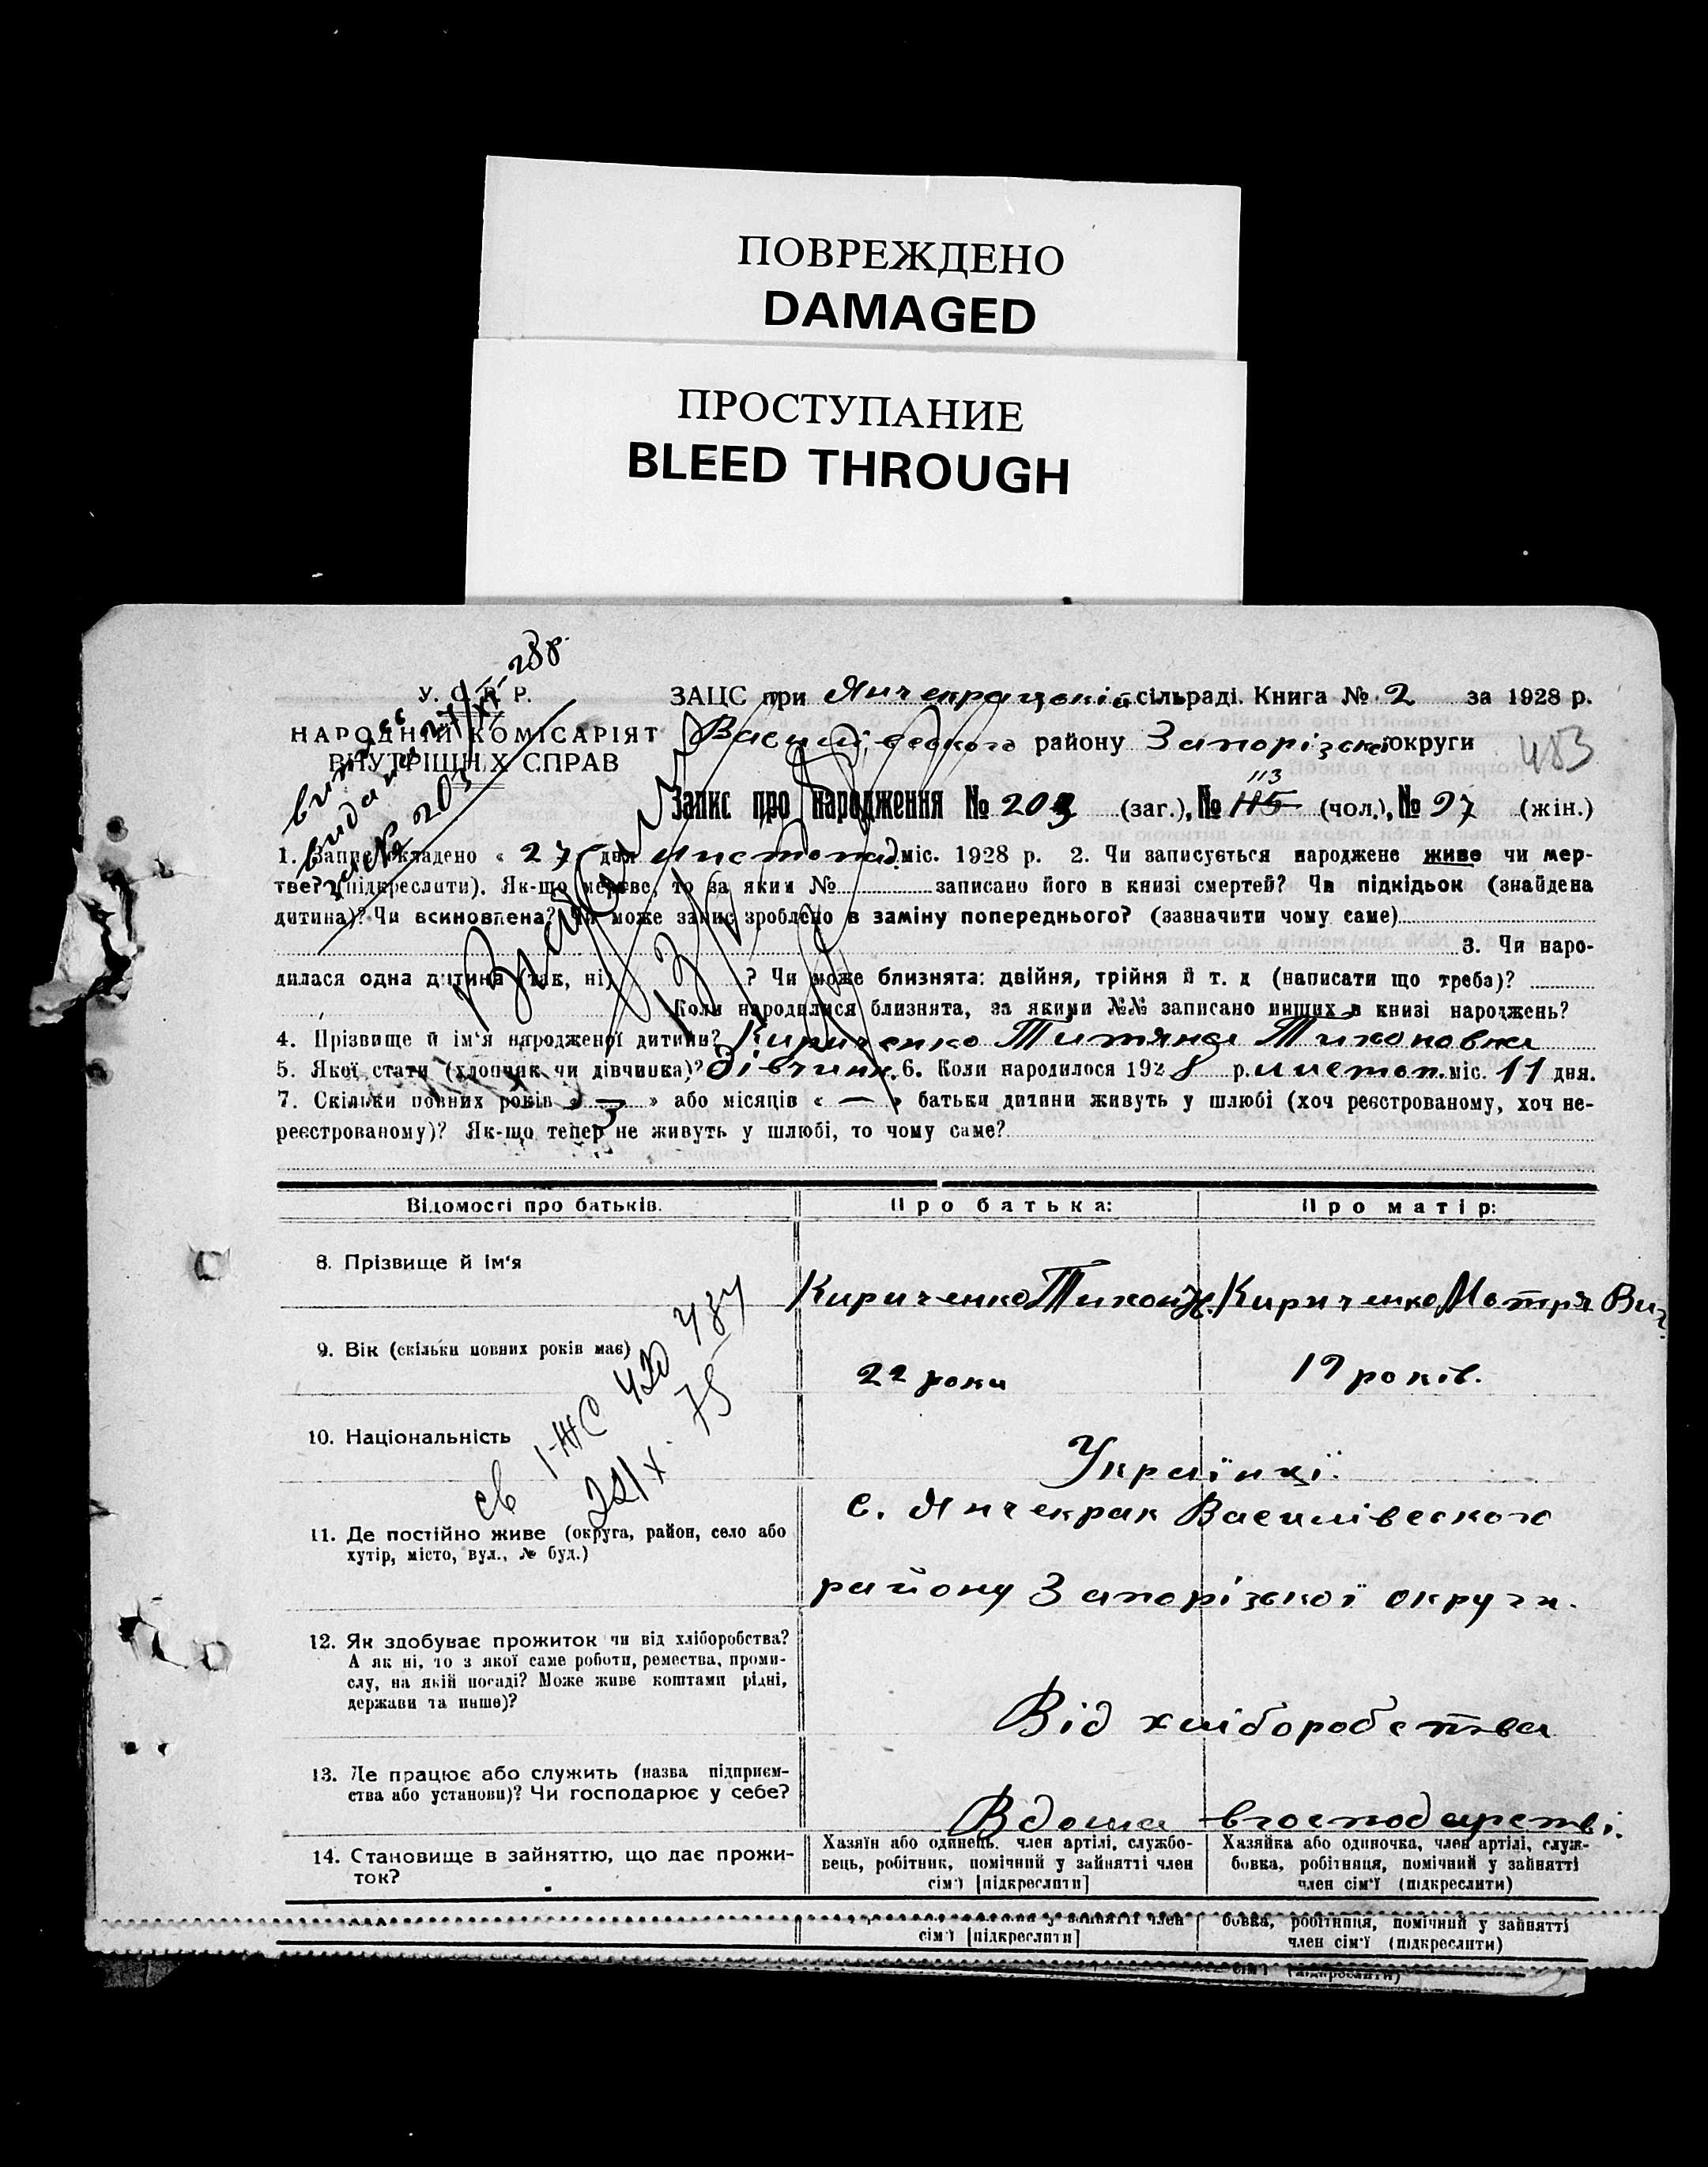 ПОВРЕЖДЕНО
DAMAGED
ПРОСТУПАНИЕ
BLEED THROUGH
У. С. Р. Р.
НАРОДНІЙ КОМІСАРІЯТ
ВНУТРІШНІХ СПРАВ
ЗАЦС при Янчекрацькій сільраді. Книга № 2 за 1928 р.
Василівського району Запорізскої округи
483
113
Запис про народження № 203 (заг.), № 115 (чол.), № 97 (жін.)
1. Запис складено « 27 » дня листопад міс. 1928 р. 2. Чи записується народжене живе чи мер-
тве? (підкреслити). Як-що мертве, то за яким № записано його в книзі смертей? Чи підкідьок (знайдена
дитина)? Чи всиновлена? Чи може запис зроблено в заміну попереднього? (зазначити чому саме)
3. Чи наро-
дилася одна дитина (так, ні) ? Чи може близнята: двійня, трійня й т. д (написати що треба)?
Коли народилися близнята, за якими №№ записано инших в книзі народжень?
4. Прізвище й ім'я народженої дитини? Кириченко Титяна Тихоновна
5. Якої стати (хлопчик чи дівчинка)? дівчинк. 6. Коли народилося 1928 р. листоп. міс. 11 дня.
7. Скільки повних років « — » або місяців « — » батьки дитини живуть у шлюбі (хоч реєстрованому, хоч не-
реєстрованому)? Як-що тепер не живуть у шлюбі, то чому саме?
Відомості про батьків. Про батька: Про матір:
8. Прізвище й ім'я
Кириченко Тихон Кириченко Мотря
9. Вік (скільки повних років має)
22 роки 19 років.
10. Національність
Україикі.
11. Де постійно живе (округа, район, село або
хутір, місто, вул., № буд.)
с. Янчекрак Василівського
району Запорізскої округи.
12. Як здобуває прожиток чи від хліборобства?
А як ні, то з якої саме роботи, ремества, проми-
слу, на якій посаді? Може живе коштами рідні,
держави та инше)?
Від хліборобства
13. Де працює або служить (назва підприєм-
ства або установи)? Чи господарює у себе?
Вдома в господарстві.
14. Становище в зайняттю, що дає прожи-
ток?
Хазяїн або одинець. член артілі, службо-
вець, робітник, помічний у зайнятті член
сім'ї [підкреслити]
Хазяйка або одиночка, член артілі, служ-
бовка, робітниця, помічний у зайнятті
член сім'ї (підкреслити)
сім'ї [підкреслити]
бовка, робітниця, помічний у зайнятті
член сім'ї (підкреслити)